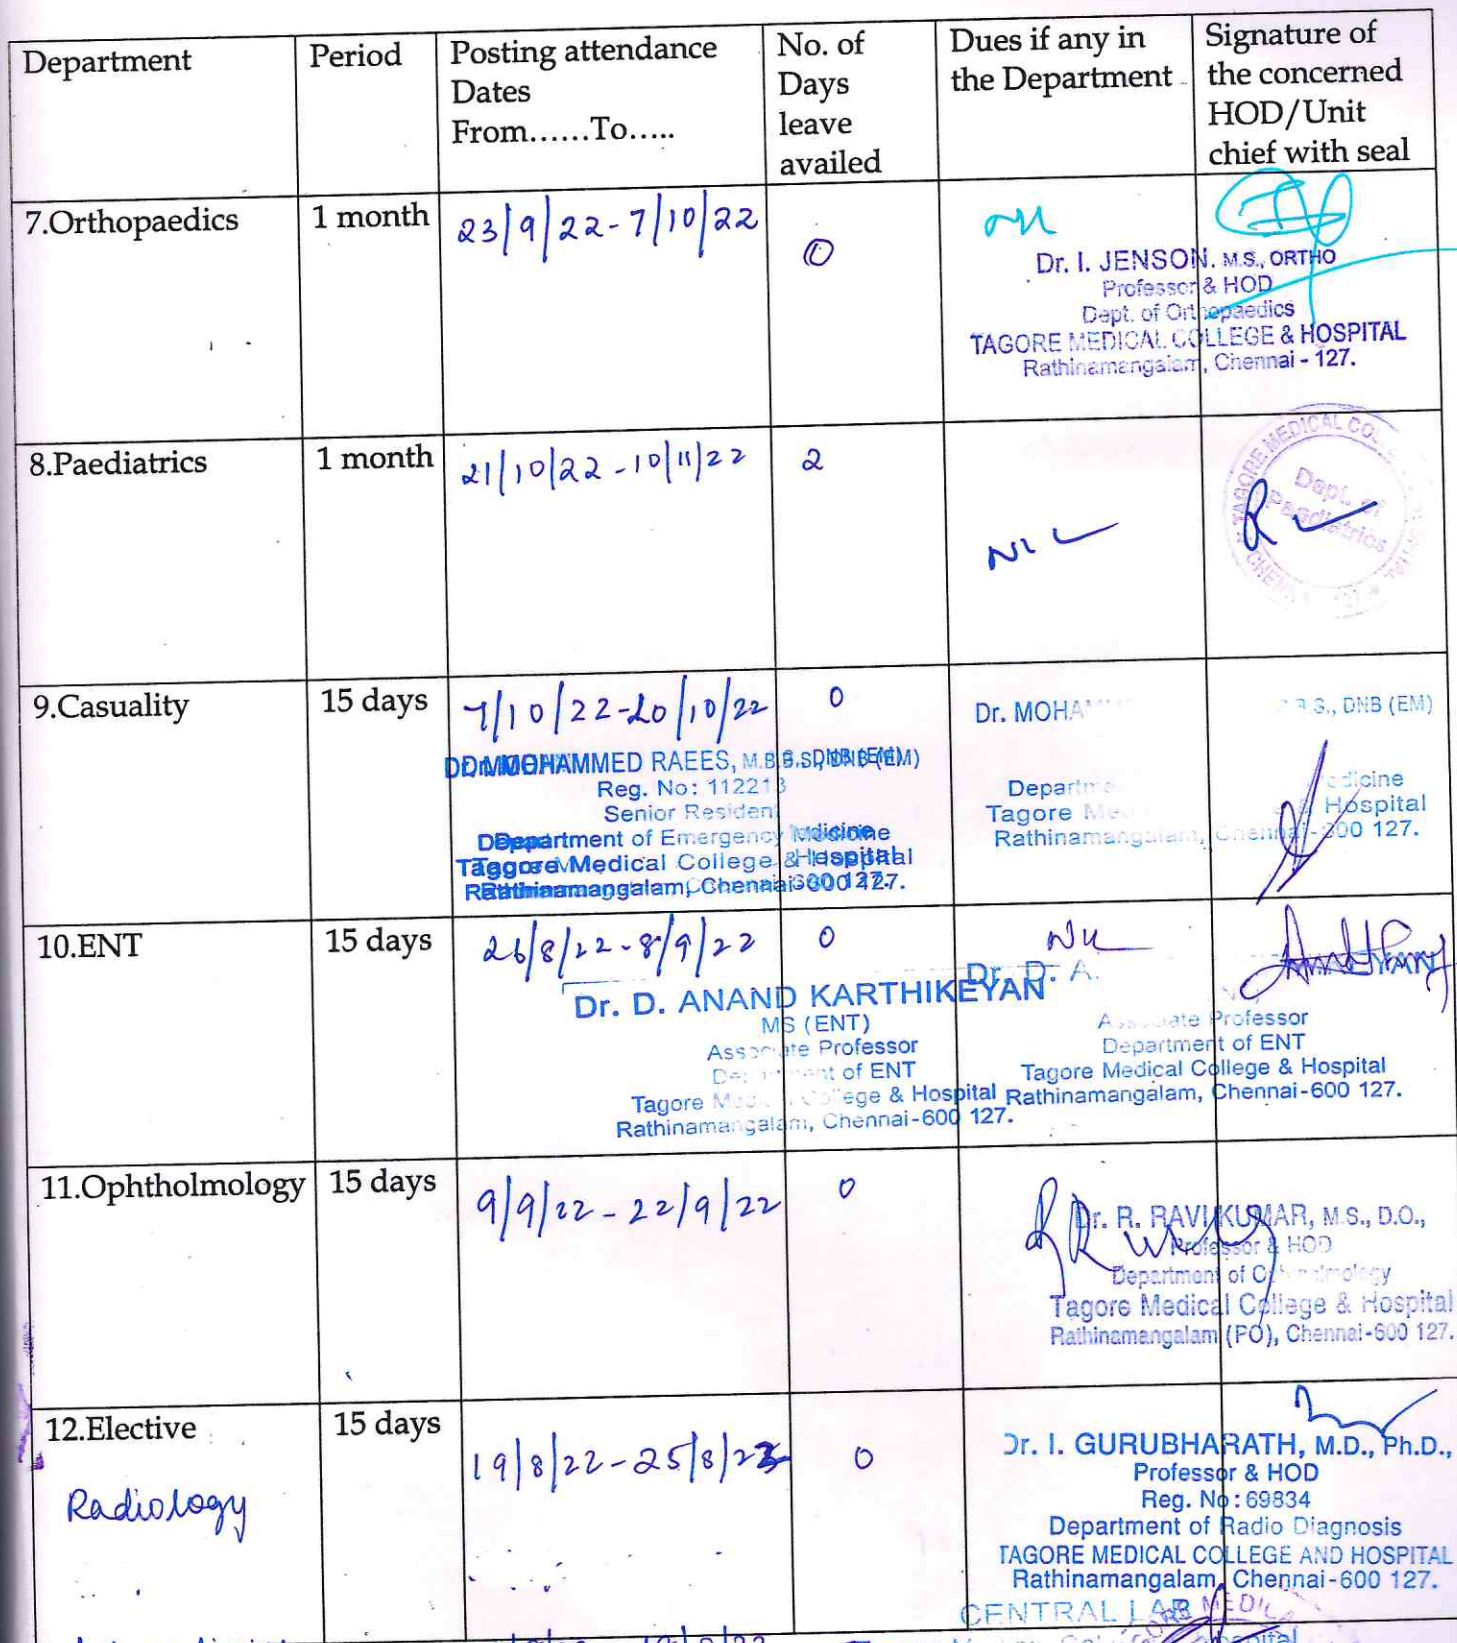 Department
Period
Posting attendance
Dates
From......To.....
No. of
Days
leave
availed
Dues if any in
the Department
Signature of
the concerned
HOD/Unit
chief with seal
7.Orthopaedics
1 month
23/9/22-7/10/22
0
nil
Dr. I. JENSON. M.S., ORTHO
Professor & HOD
Dept. of Orthopaedics
TAGORE MEDICAL COLLEGE & HOSPITAL
Rathinamangalam, Chennai - 127.
8.Paediatrics
1 month
21/10/22-10/11/22
2
NIL
TAGORE MEDICAL
Dept. of
Paediatrics
9.Casuality
15 days
7/10/22-20/10/22
0
MOHAMMED RAEES, M.B.B.S., DNB (EM)
Reg. No: 112213
Senior Resident
Department of Emergency Medicine
Tagore Medical College & Hospital
Rathinamangalam, Chennai-600 127.
Dr. MOHA
S., DNB (EM)
Depart
dicine
Tagore Me
Hospital
Rathinamangalam, Chennai-600 127.
10.ENT
15 days
26/8/22-8/9/22
0
Nil
Dr. D. ANAND KARTHIKEYAN
MS (ENT)
Associate Professor
Department of ENT
Tagore Medical College & Hospital
Rathinamangalam, Chennai-600 127.
Dr. D. A.
YAN
Associate Professor
Department of ENT
Tagore Medical College & Hospital
Rathinamangalam, Chennai-600 127.
11.Ophtholmology
15 days
9/9/22-22/9/22
0
Dr. R. RAVIKUMAR, M.S., D.O.,
Professor & HOD
Department of Ophthalmology
Tagore Medical College & Hospital
Rathinamangalam (PO), Chennai-600 127.
12.Elective
Radiology
15 days
19/8/22-25/8/22
0
Dr. I. GURUBHARATH, M.D., Ph.D.,
Professor & HOD
Reg. No: 69834
Department of Radio Diagnosis
TAGORE MEDICAL COLLEGE AND HOSPITAL
Rathinamangalam, Chennai-600 127.
CENTRAL LAB